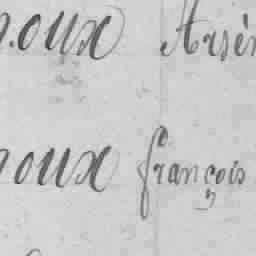 oux Arsèn
oux françois